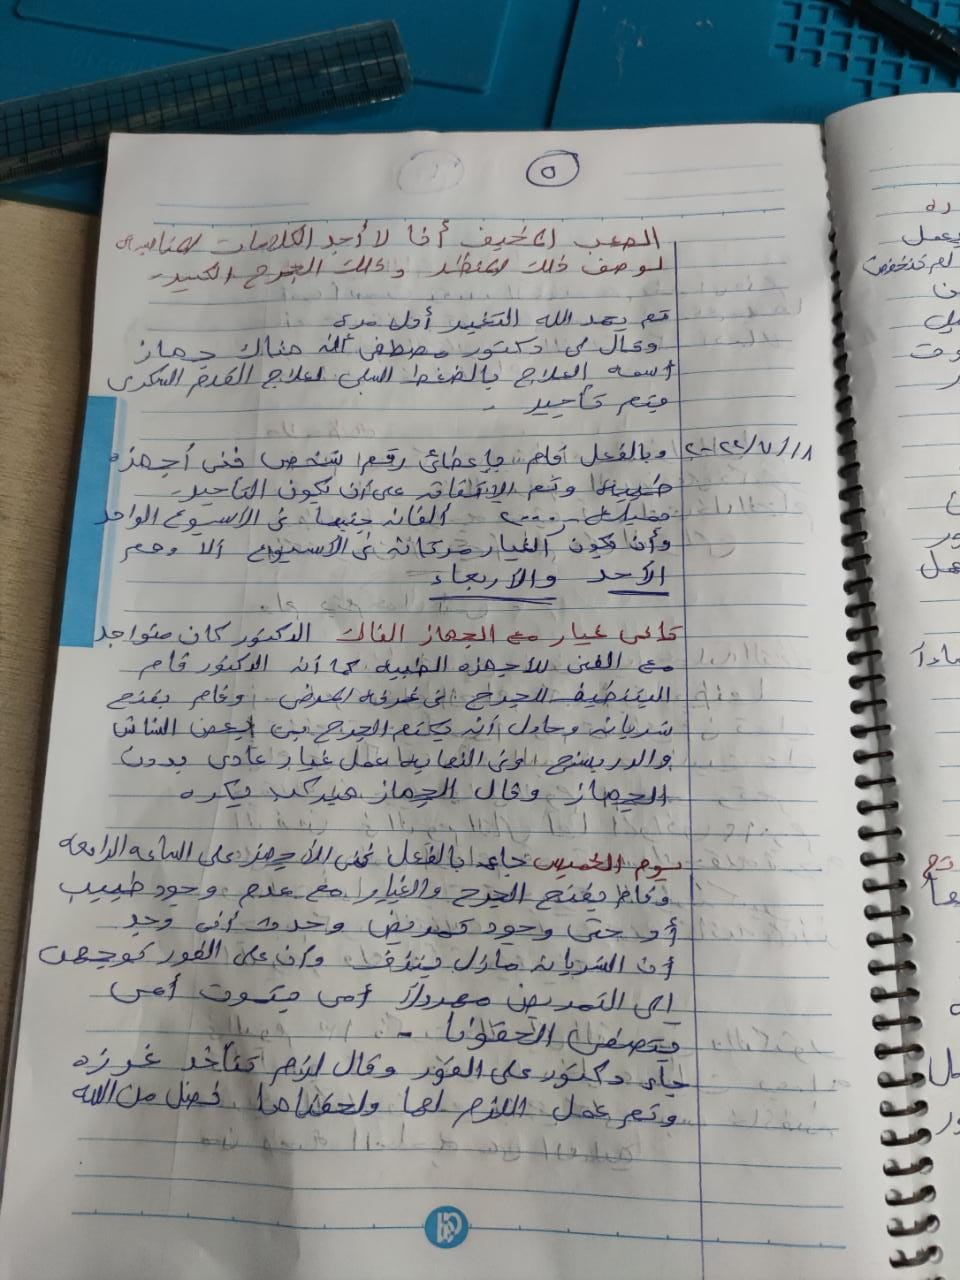 ٥
الصعب المخيف أنا لا أجد الكلمات المناسبه
لوصف ذلك المنظر وذلك الجرح الكبير
تم بحمد الله التغير أول مره
وقال لى دكتور مصطفى أنه هناك جهاز
أسمه العلاج بالضغط السلبى لعلاج القدم السكرى
فيتم تأجير
٢٠٢٢/٧/١٨ وبالفعل قام بإعطائى رقم شخص فنى أجهزه
طبيه وتم الاتفاق على أن يكون التأجير
٢٠٠٠ ألفان جنيها فى الأسبوع الواحد
وأن يكون الغيار مرتان فى الأسبوع ألا وهم
الأحد والأربعاء
غيار مع الجهاز الدكتور كان متواجد
مع الفنى للأجهزه الطبيه كما أنه الدكتور قام
بتنظيف الجرح فى غرفه المرضى وقام بفتح
شريان وحاول أنه يكتم الجرح بين بعض الشاش
والدريسنج وفى النهايه عمل غيار عادى بدون
الجهاز وقال الجهاز هيركب بكره
يوم الخميس جاء بالفعل فنى الأجهزه على الساعه الرابعه
وقام بفتح الجرح والغيار مع عدم وجود طبيب
أو حتى وجود تمريض وحدث أنى وجد
أن الشريان مازال ينزف وأن على الفور توجهت
إلى التمريض مهرولاً أمى بتموت أمى
بتصفى الحقونا
جاء دكتور على الفور وقال لازم تتأخد غرزه
وتم عمل اللازم لها ولحقناها فضل من الله